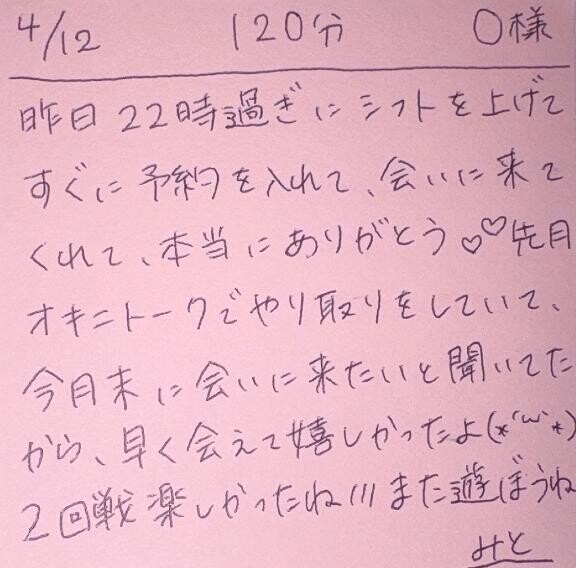 4/12 120分 O様
昨日22時過ぎにシフトを上げて
すぐに予約を入れて、会いに来て
くれて、本当にありがとう♡♡先月
オキニトークでやり取りをしていて、
今月末に会いに来たいと聞いてた
から、早く会えて嬉しかったよ(*´ω`*)
2回戦楽しかったね!!!また遊ぼうね
みと